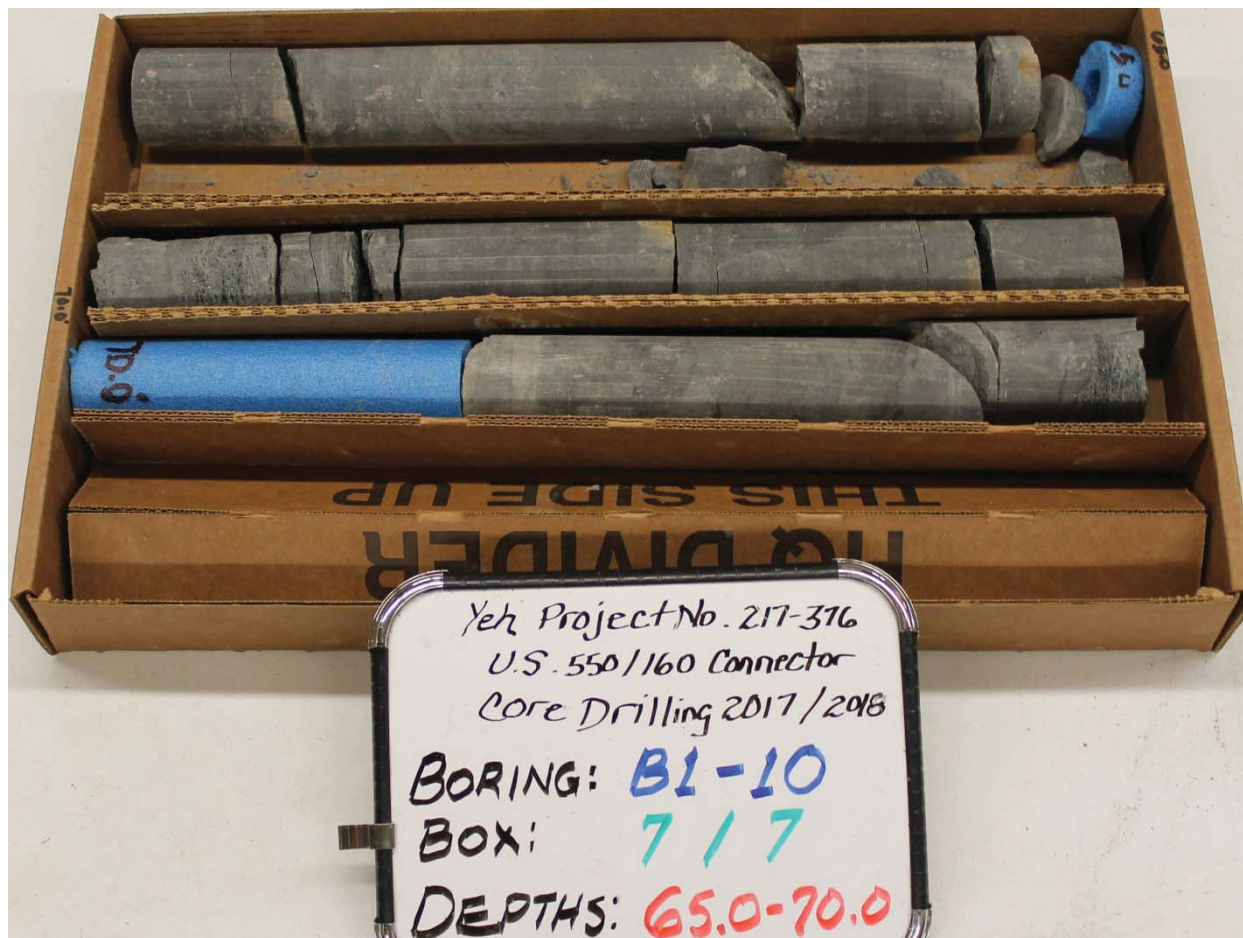 65.0
70.0
70.0
THIS SIDE UP
HQ DIVIDER
Yeh Project No. 217-376
U.S. 550/160 Connector
Core Drilling 2017/2018
BORING: B1-10
BOX: 7/7
DEPTHS: 65.0-70.0